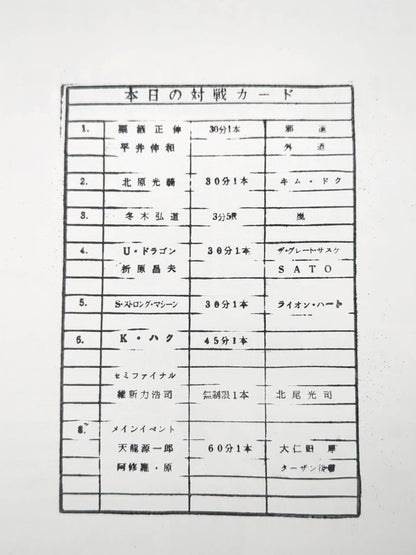 本日の対戦カード
1. 栗栖正伸 30分1本 邪道
平井伸和 外道
2. 北原光騎 30分1本 キム・ドク
3. 冬木弘道 3分5R 嵐
4. U・ドラゴン 30分1本 ザ・グレート・サスケ
折原昌夫 SATO
5. S・ストロング・マシーン 30分1本 ライオン・ハート
6. K・ハク 45分1本
セミファイナル
維新力浩司 無制限1本 北尾光司
8. メインイベント
天龍源一郎 60分1本 大仁田厚
阿修羅・原 ターザン後藤